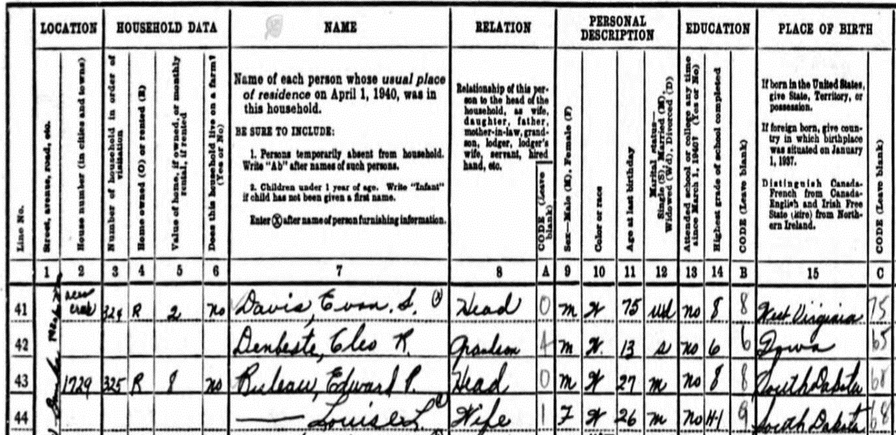 LOCATION HOUSEHOLD DATA NAME RELATION PERSONAL DESCRIPTION EDUCATION PLACE OF BIRTH
Line No.
Street, avenue, road, etc.
House number (in cities and towns)
Number of household in order of visitation
Home owned (O) or rented (R)
Value of home, if owned, or monthly rental, if rented
Does this household live on a farm? (Yes or No)
Name of each person whose usual place
of residence on April 1, 1940, was in
this household.
BE SURE TO INCLUDE:
1. Persons temporarily absent from household.
Write "Ab" after names of such persons.
2. Children under 1 year of age. Write "Infant"
if child has not been given a first name.
Enter Ⓧ after name of person furnishing information.
Relationship of this per-
son to the head of the
household, as wife,
daughter, father,
mother-in-law, grand-
son, lodger, lodger's
wife, servant, hired
hand, etc.
CODE (Leave blank)
Sex—Male (M), Female (F)
Color or race
Age at last birthday
Marital status—Single (S), Married (M), Widowed (Wd), Divorced (D)
Attended school or college any time since March 1, 1940? (Yes or No)
Highest grade of school completed
CODE (Leave blank)
If born in the United States,
give State, Territory, or
possession.
If foreign born, give coun-
try in which birthplace
was situated on January
1, 1937.
Distinguish Canada-
French from Canada-
English and Irish Free
State (Eire) from North-
ern Ireland.
CODE (Leave blank)
1 2 3 4 5 6 7 8 A 9 10 11 12 13 14 B 15 C
41 324 R 2 no Davis, Evan. S. Head 0 m W 75 wd no 8 8 West Virginia 75
42 Denbeste, Cleo R. Grandson 4 m W 13 s no 6 6 Iowa 65
43 1729 325 R 8 no Edward P. Head 0 m W 27 m no 8 8 South Dakota 68
44 —— Louise L. Wife 1 F W 26 m no H-1 9 South Dakota 68